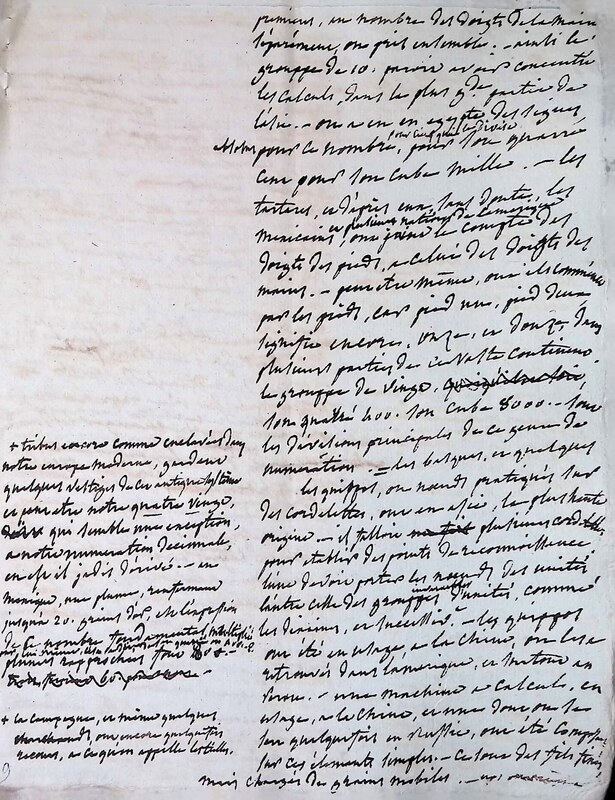 premiers, en nombre des doigts de la main
séparément, ou pris ensemble. - ainsi le
grouppe de 10. paroit avoir concentré
les calculs, dans la plus gde partie de
l'asie. - on a eu en egypte des signes
pour ce nombre, pour son quarré
pour cinq qui le divise
cent pour son cube mille. - les
tartares, et d'après eux, sans doute, les
et plusieurs nations de l'amerique
mexicains, ont joint le compte des
doigts des pieds, a celui des doigts des
mains. - peut être même, ont ils commencé
par les pieds, car pied un, pied deux
signifie encore, onze, et douze, dans
plusieurs parties de ce vaste continent
le grouppe de vingt,
son quarré 400. son cube 8000. - sont
les divisions principales de ce genre de
numération - les basques, et quelques
les quippos, ou nœuds pratiqués sur
des cordelettes, ont en asie, la plus haute
origine. - il falloit plusieurs cordelettes
pour établir des points de reconnoissance
l'une devoit porter les nœuds des unités
l'autre celle des grouppes d'unités, comme
les dixains, et successivt. - les quippos
ont été en usage, a la chine, on les a
retrouvés dans l'amerique, et surtout au
perou. - une machine a calculs, en
usage, a la chine, et une dont on se
sert quelquefois en russie, ont été composées
sur ces élements simples. - ce sont des fils tendus
mais chargés de grains mobiles. -
+ tribus encore comme enclavées dans
notre europe moderne, gardent
quelques vestiges de cet antique système
et peut etre notre quatre vingt,
qui semble une exception,
a notre numération décimale,
en est il jadis dérivé. - au
mexique, une plume, renfermant
jusqu'a 20. grains d'or, est l'expression
de ce nombre fondamental, multiplié
plumes rapprochées font 
+ la campagne, et même quelques
ont encore quelquefois
recours, a ce qu'on appelle les tailles.